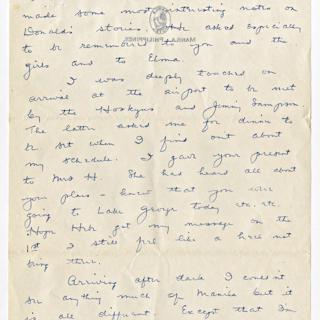 made some most interesting notes on
Donald's stories. Mr. asked especially
to be remembered to you and the
girls and to Elma.
I was deeply touched on
arrival at the airport to be met
by the Hoskyns and Jimmy Simpson.
The latter asked me for dinner to
be set when I find out about
my schedule. I gave your present
to Mrs H. She had heard all about
your plans – knew that you were
going to Lake George today etc. etc.
got my message on the
1st I still feel like a
thing there.
Arriving after dark I couldn't
see anything much of Manila but it
is all different. Except that I'm
MANILA, PHILIPPINES